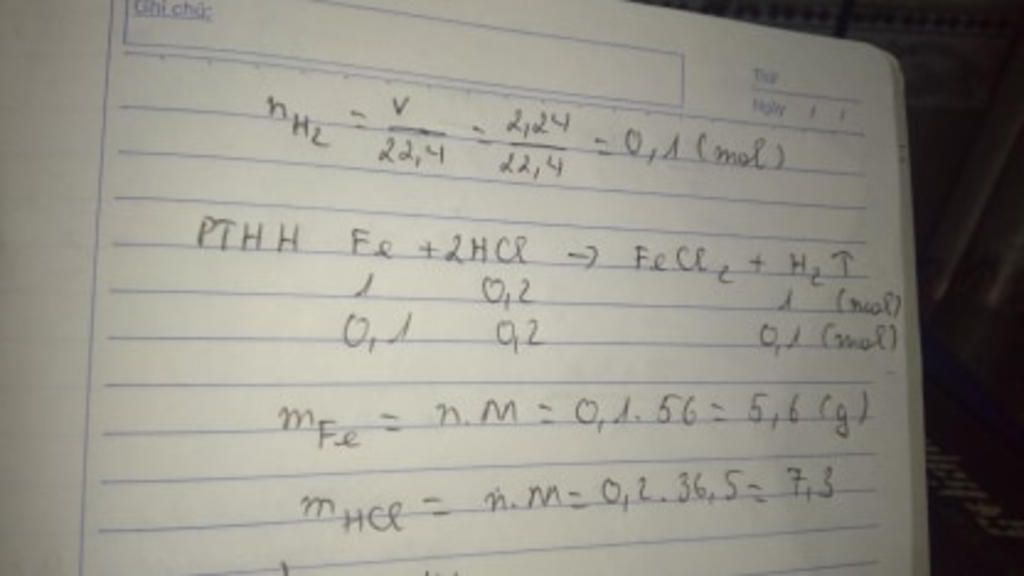 Ghi chú:
Thứ
Ngày / /
n H₂ = V/22,4 = 2,24/22,4 = 0,1 (mol)
PTHH Fe + 2HCl → FeCl₂ + H₂ ↑
1 0,2 1 (mol)
0,1 0,2 0,1 (mol)
m Fe = n.M = 0,1.56 = 5,6 (g)
m HCl = n.M = 0,2.36,5 = 7,3